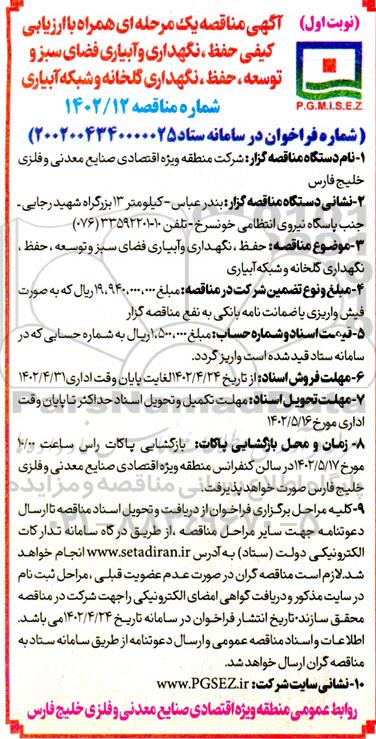 (نوبت اول)
آگهی مناقصه یک مرحله ای همراه با ارزیابی
کیفی حفظ ، نگهداری و آبیاری فضای سبز و
توسعه ، حفظ ، نگهداری گلخانه و شبکه آبیاری
P.G.M.I.S.E.Z
شماره مناقصه ۱۴۰۲/۱۲
(شماره فراخوان در سامانه ستاد ۲۰۰۲۰۰۴۳۴۰۰۰۰۰۲۵)
۱- نام دستگاه مناقصه گزار: شرکت منطقه ویژه اقتصادی صنایع معدنی و فلزی
خلیج فارس
۲- نشانی دستگاه مناقصه گزار: بندر عباس - کیلومتر ۱۳ بزرگراه شهید رجایی -
جنب پاسگاه نیروی انتظامی خونسرخ - تلفن ۱۰-۳۳۵۹۲۲۰۱ (۰۷۶)
۳- موضوع مناقصه: حفظ ، نگهداری و آبیاری فضای سبز و توسعه ، حفظ ،
نگهداری گلخانه و شبکه آبیاری
۴- مبلغ و نوع تضمین شرکت در مناقصه: مبلغ ۱۹،۹۴۰،۰۰۰،۰۰۰ ریال که به صورت
فیش واریزی یا ضمانت نامه بانکی به نفع مناقصه گزار
۵- قیمت اسناد و شماره حساب: مبلغ ۱،۵۰۰،۰۰۰ ریال به شماره حسابی که در
سامانه ستاد قید شده است واریز گردد.
۶- مهلت فروش اسناد: از تاریخ ۱۴۰۲/۴/۲۴ لغایت پایان وقت اداری ۱۴۰۲/۴/۳۱
۷- مهلت تحویل اسناد: مهلت تکمیل و تحویل اسناد حداکثر تا پایان وقت
اداری مورخ ۱۴۰۲/۵/۱۶
۸- زمان و محل بازگشایی پاکات: بازگشایی پاکات راس ساعت ۱۰/۰۰
مورخ ۱۴۰۲/۵/۱۷ در سالن کنفرانس منطقه ویژه اقتصادی صنایع معدنی و فلزی
خلیج فارس صورت خواهد پذیرفت.
۹- کلیه مراحل برگزاری فراخوان از دریافت و تحویل اسناد مناقصه تا ارسال
دعوتنامه جهت سایر مراحل مناقصه ، از طریق درگاه سامانه تدارکات
الکترونیکی دولت (ستاد) به آدرس www.setadiran.ir انجام خواهد
شد. لازم است مناقصه گران در صورت عدم عضویت قبلی ، مراحل ثبت نام
در سایت مذکور و دریافت گواهی امضای الکترونیکی را جهت شرکت در مناقصه
محقق سازند. تاریخ انتشار فراخوان در سامانه تاریخ ۱۴۰۲/۴/۲۴ می باشد.
اطلاعات و اسناد مناقصه عمومی و ارسال دعوتنامه از طریق سامانه ستاد به
مناقصه گران ارسال خواهد شد.
۱۰- نشانی سایت شرکت: www.PGSEZ.ir
روابط عمومی منطقه ویژه اقتصادی صنایع معدنی و فلزی خلیج فارس